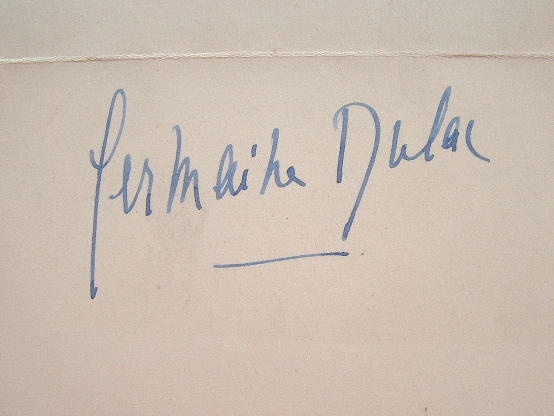 Germaine Dulac